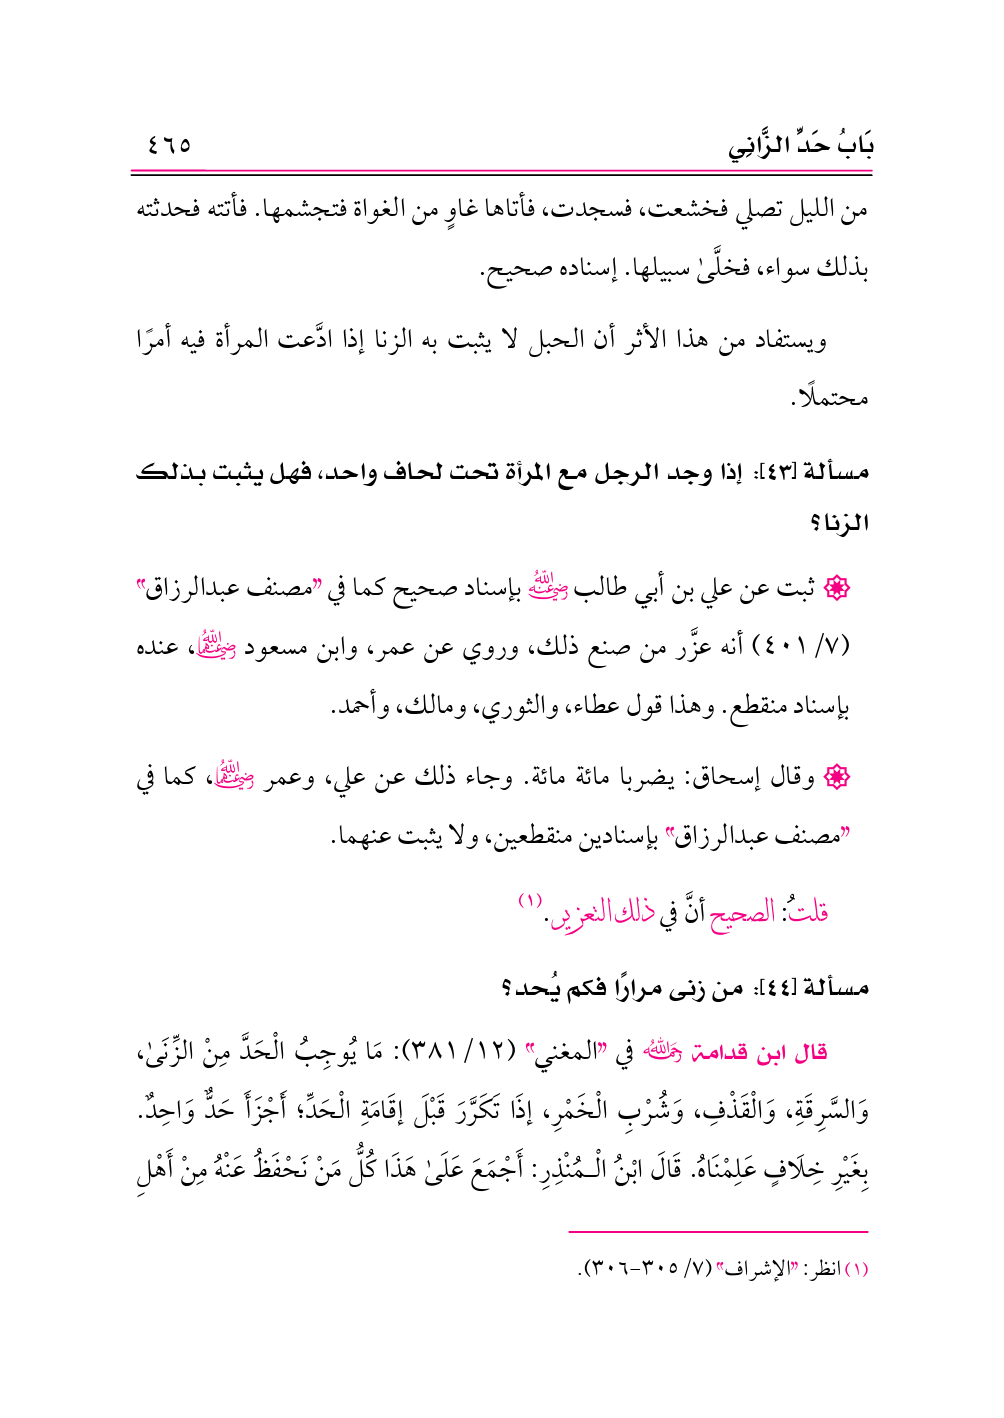 بَابُ حَدِّ الزَّانِي
٤٦٥
من الليل تصلي فخشعت، فسجدت، فأتاها غاوٍ من الغواة فتجشمها. فأتته فحدثته
بذلك سواء، فخلَّىٰ سبيلها. إسناده صحيح.
ويستفاد من هذا الأثر أن الحبل لا يثبت به الزنا إذا ادَّعت المرأة فيه أمرًا
محتملًا.
مسألة [٤٣]: إذا وجد الرجل مع المرأة تحت لحاف واحد، فهل يثبت بذلك
الزنا؟
ثبت عن علي بن أبي طالب رضي الله عنه بإسناد صحيح كما في "مصنف عبدالرزاق"
(٧/ ٤٠١) أنه عزَّر من صنع ذلك، وروي عن عمر، وابن مسعود رضي الله عنهما، عنده
بإسناد منقطع. وهذا قول عطاء، والثوري، ومالك، وأحمد.
وقال إسحاق: يضربا مائة مائة. وجاء ذلك عن علي، وعمر رضي الله عنهما، كما في
"مصنف عبدالرزاق" بإسنادين منقطعين، ولا يثبت عنهما.
قلتُ: الصحيح أنَّ في ذلك التعزير.(١)
مسألة [٤٤]: من زنى مرارًا فكم يُحد؟
قال ابن قدامة رحمه الله في "المغني" (١٢/ ٣٨١): مَا يُوجِبُ الْحَدَّ مِنْ الزِّنَىٰ،
وَالسَّرِقَةِ، وَالْقَذْفِ، وَشُرْبِ الْخَمْرِ، إذَا تَكَرَّرَ قَبْلَ إقَامَةِ الْحَدِّ؛ أَجْزَأَ حَدٌّ وَاحِدٌ.
بِغَيْرِ خِلَافٍ عَلِمْنَاهُ. قَالَ ابْنُ الْـمُنْذِرِ: أَجْمَعَ عَلَىٰ هَذَا كُلُّ مَنْ نَحْفَظُ عَنْهُ مِنْ أَهْلِ
(١) انظر: "الإشراف" (٧/ ٣٠٥-٣٠٦).